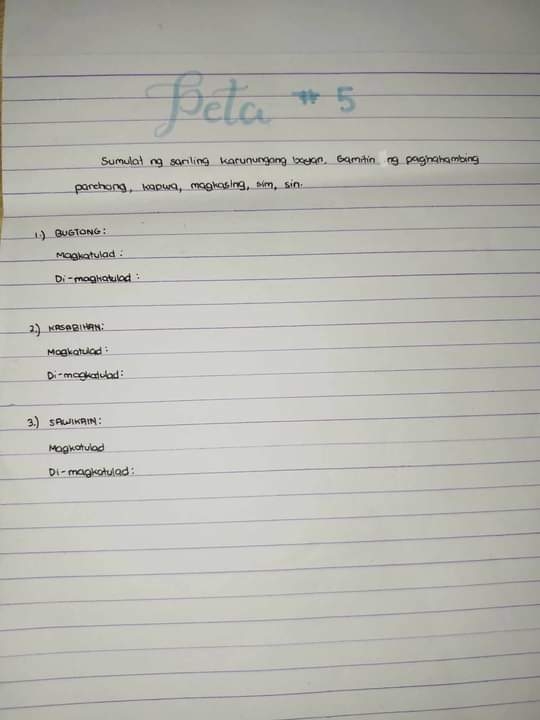 Peta # 5
Sumulat ng sariling karunungang bayan. Gamitin ng paghahambing
parehong, kapwa, magkasing, sim, sin.
1.) BUGTONG:
Magkatulad:
Di-magkatulad:
2.) KASABIHAN:
Magkatulad:
Di-magkatulad:
3.) SAWIKAIN:
Magkatulad
Di-magkatulad: